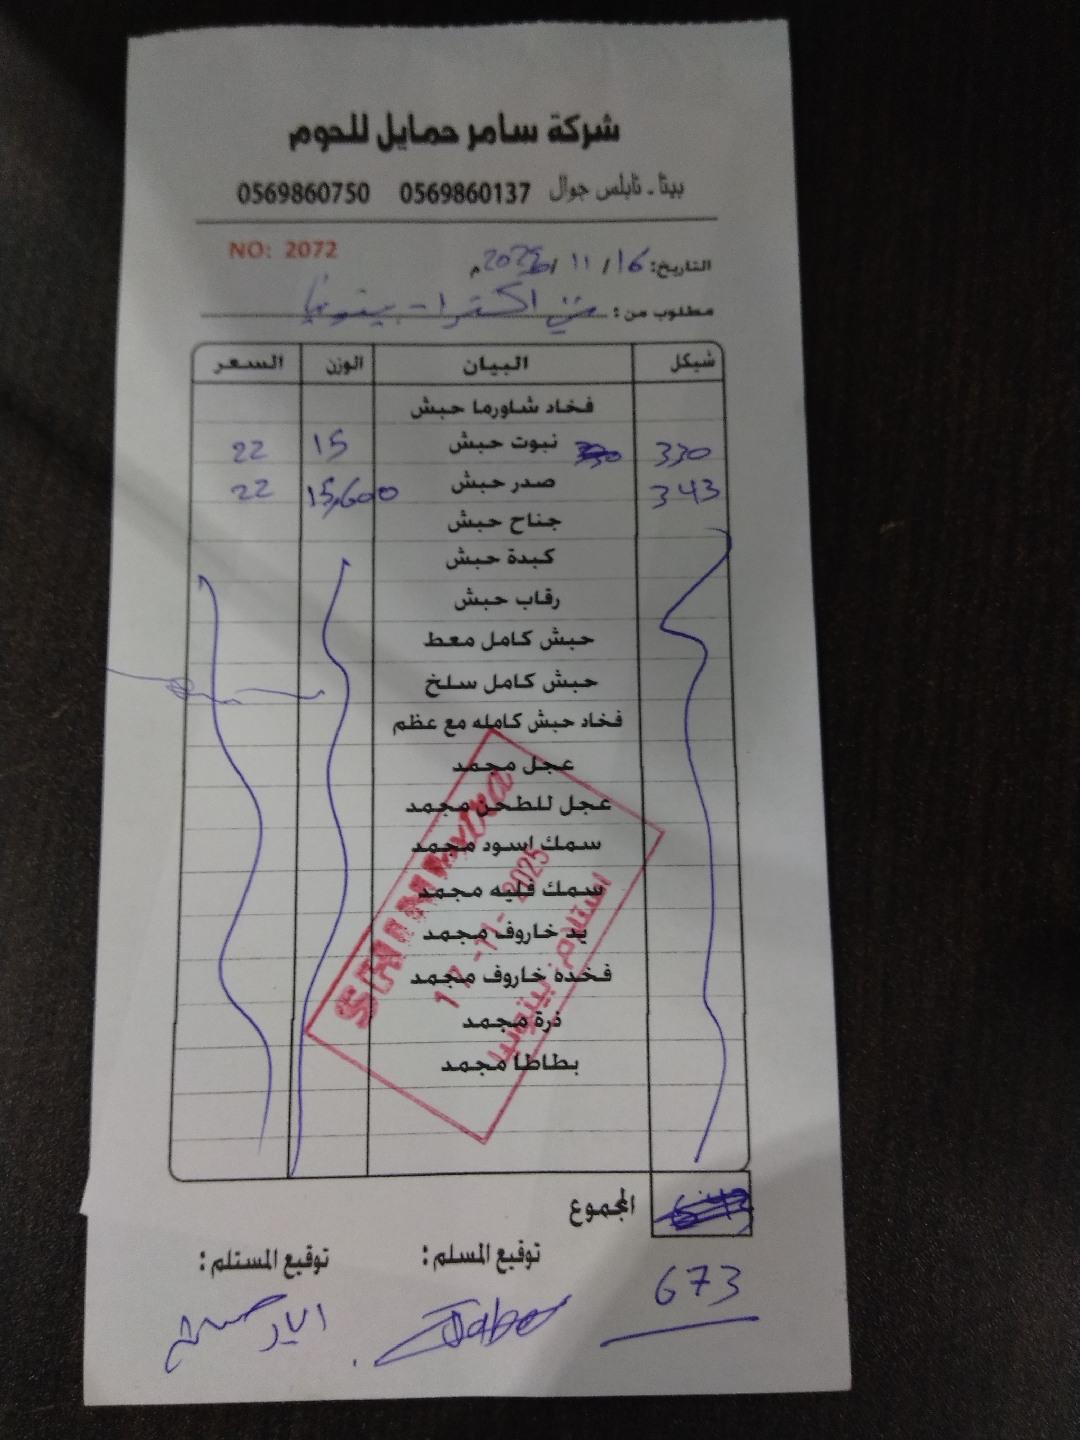 شركة سامر حمايل للحوم
بيتا - نابلس جوال 0569860137 0569860750
NO: 2072
التاريخ: 16 / 11 / 2025 م
مطلوب من : اكسترا - بيتونيا
شيكل البيان الوزن السعر
فخاد شاورما حبش
330 نبوت حبش 15 22
343 صدر حبش 15,600 22
جناح حبش
كبدة حبش
رقاب حبش
حبش كامل معط
حبش كامل سلخ
فخاد حبش كامله مع عظم
عجل مجمد
عجل للطحن مجمد
سمك اسود مجمد
سمك فليه مجمد
يد خاروف مجمد
فخده خاروف مجمد
ذرة مجمد
بطاطا مجمد
17 -11- 2025
استلام بيتونيا
المجموع
673
توقيع المسلم :
توقيع المستلم :